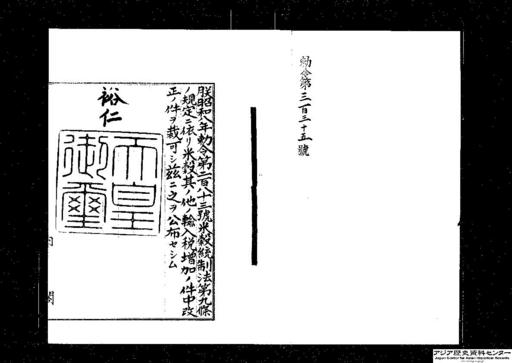 勅令第三百三十五號
朕昭和八年勅令第二百八十三號米穀統制法第九條
ノ規定ニ依リ米穀其ノ他ノ輸入税増加ノ件中改
正ノ件ヲ裁可シ茲ニ之ヲ公布セシム
裕仁
天皇
御璽
内閣
アジア歴史資料センター
Japan Center for Asian Historical Records